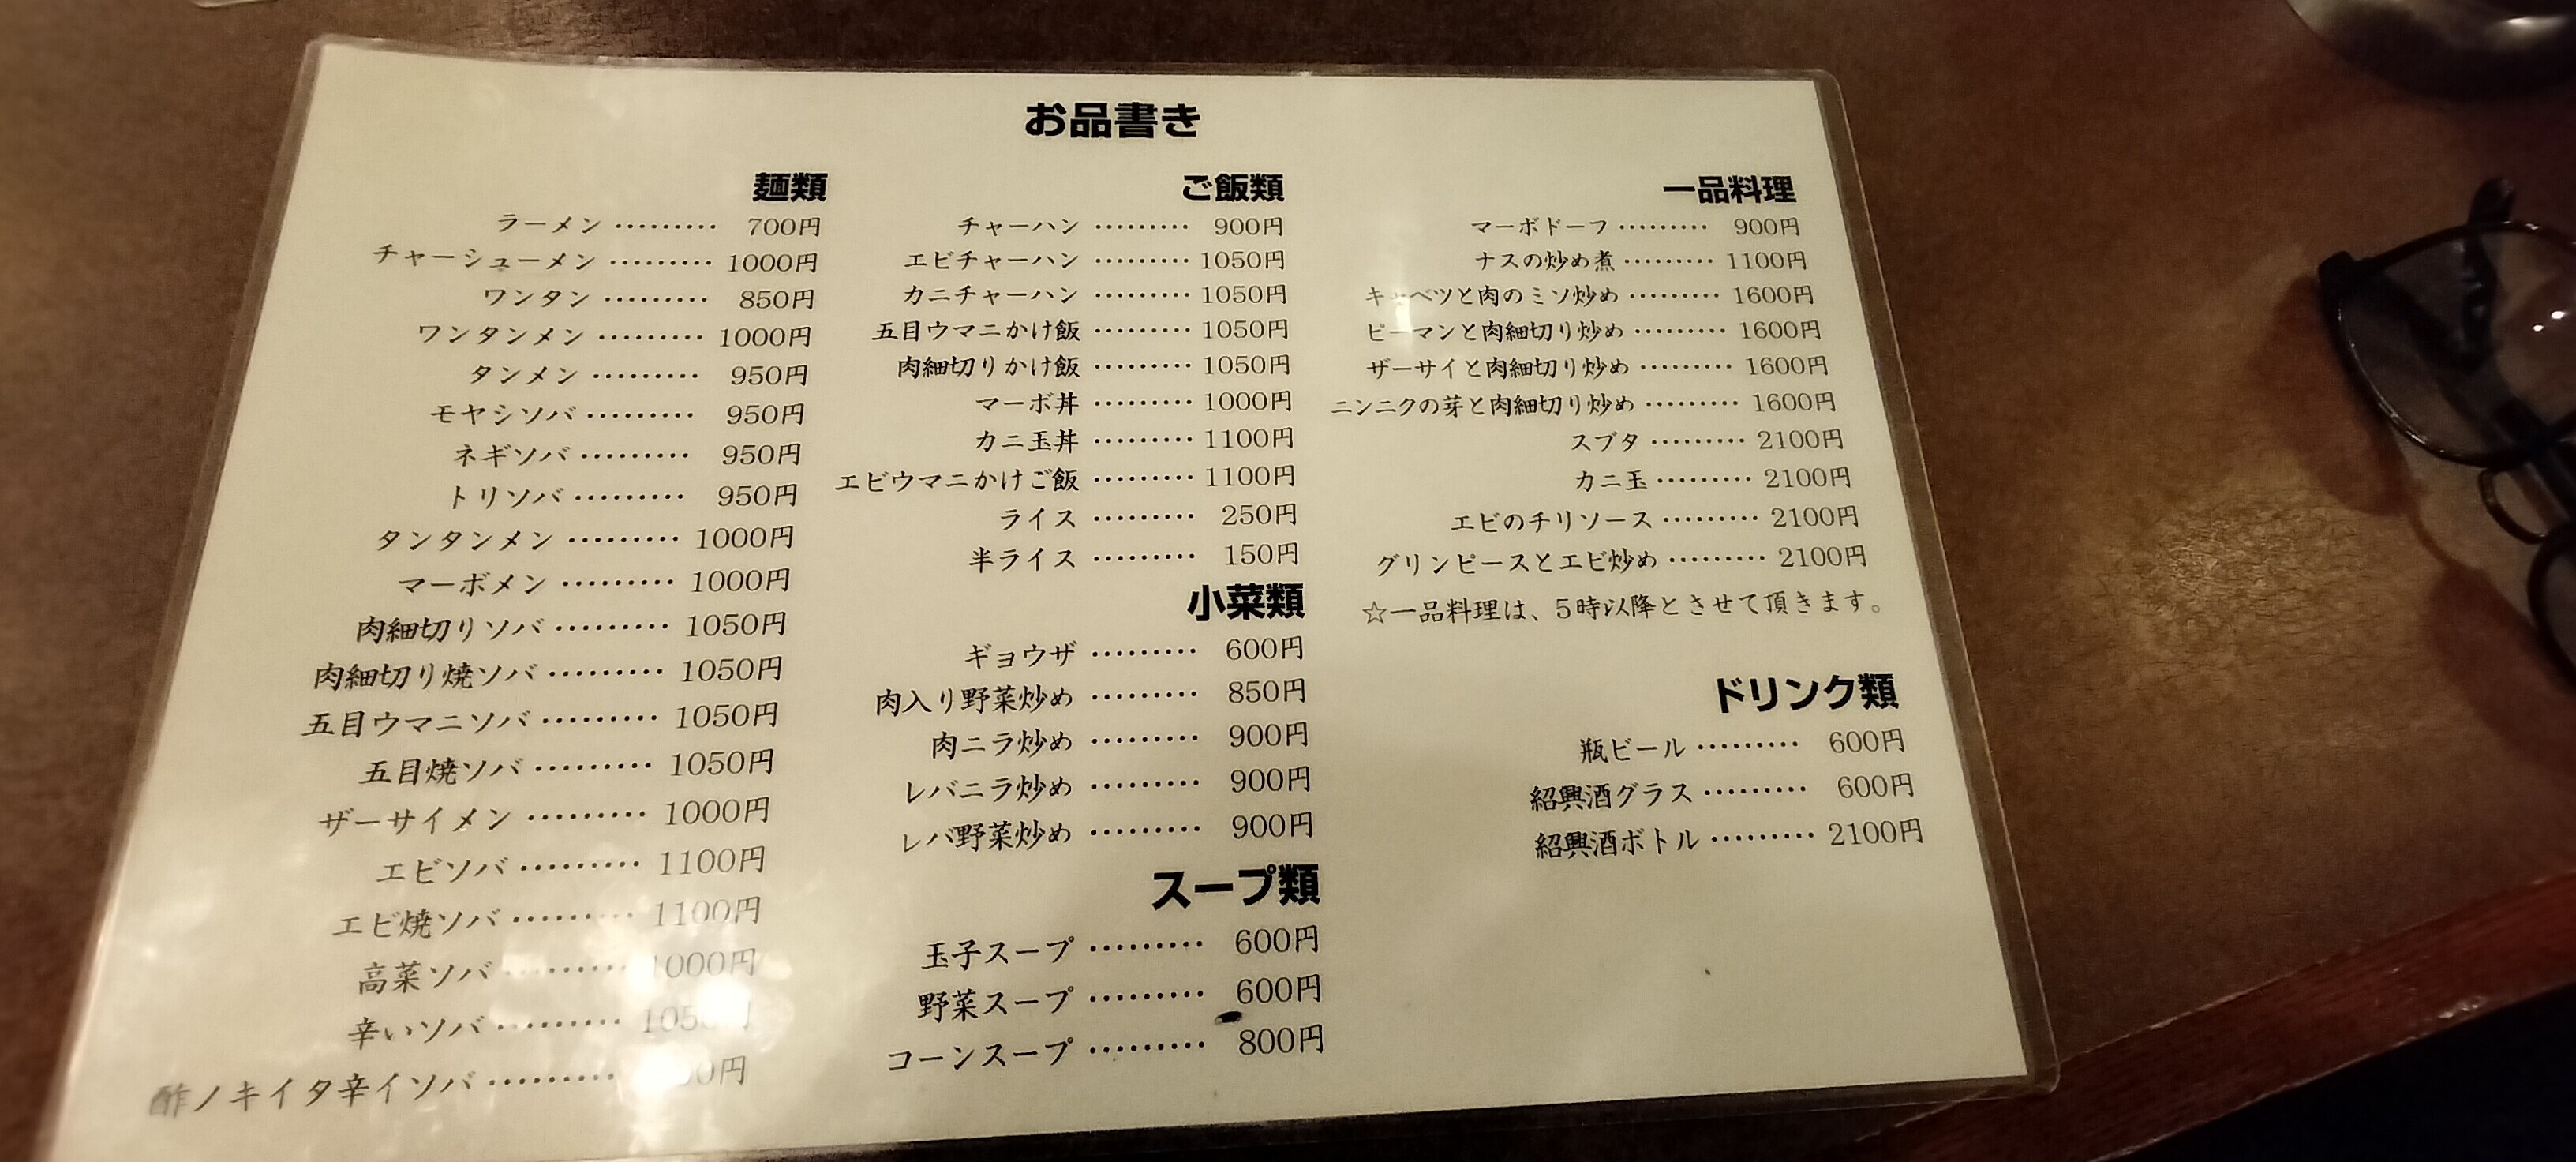 お品書き
麺類
ラーメン ……… 700円
チャーシューメン ……… 1000円
ワンタン ……… 850円
ワンタンメン ……… 1000円
タンメン ……… 950円
モヤシソバ ……… 950円
ネギソバ ……… 950円
トリソバ ……… 950円
タンタンメン ……… 1000円
マーボメン ……… 1000円
肉細切りソバ ……… 1050円
肉細切り焼ソバ ……… 1050円
五目ウマニソバ ……… 1050円
五目焼ソバ ……… 1050円
ザーサイメン ……… 1000円
エビソバ ……… 1100円
エビ焼ソバ ……… 1100円
高菜ソバ ……… 1000円
辛いソバ ………
酢ノキイタ辛イソバ ………
ご飯類
チャーハン ……… 900円
エビチャーハン ……… 1050円
カニチャーハン ……… 1050円
五目ウマニかけ飯 ……… 1050円
肉細切りかけ飯 ……… 1050円
マーボ丼 ……… 1000円
カニ玉丼 ……… 1100円
エビウマニかけご飯 ……… 1100円
ライス ……… 250円
半ライス ……… 150円
小菜類
ギョウザ ……… 600円
肉入り野菜炒め ……… 850円
肉ニラ炒め ……… 900円
レバニラ炒め ……… 900円
レバ野菜炒め ……… 900円
スープ類
玉子スープ ……… 600円
野菜スープ ……… 600円
コーンスープ ……… 800円
一品料理
マーボドーフ ……… 900円
ナスの炒め煮 ……… 1100円
キャベツと肉のミソ炒め ……… 1600円
ピーマンと肉細切り炒め ……… 1600円
ザーサイと肉細切り炒め ……… 1600円
ニンニクの芽と肉細切り炒め ……… 1600円
スブタ ……… 2100円
カニ玉 ……… 2100円
エビのチリソース ……… 2100円
グリンピースとエビ炒め ……… 2100円
☆一品料理は、5時以降とさせて頂きます。
ドリンク類
瓶ビール ……… 600円
紹興酒グラス ……… 600円
紹興酒ボトル ……… 2100円